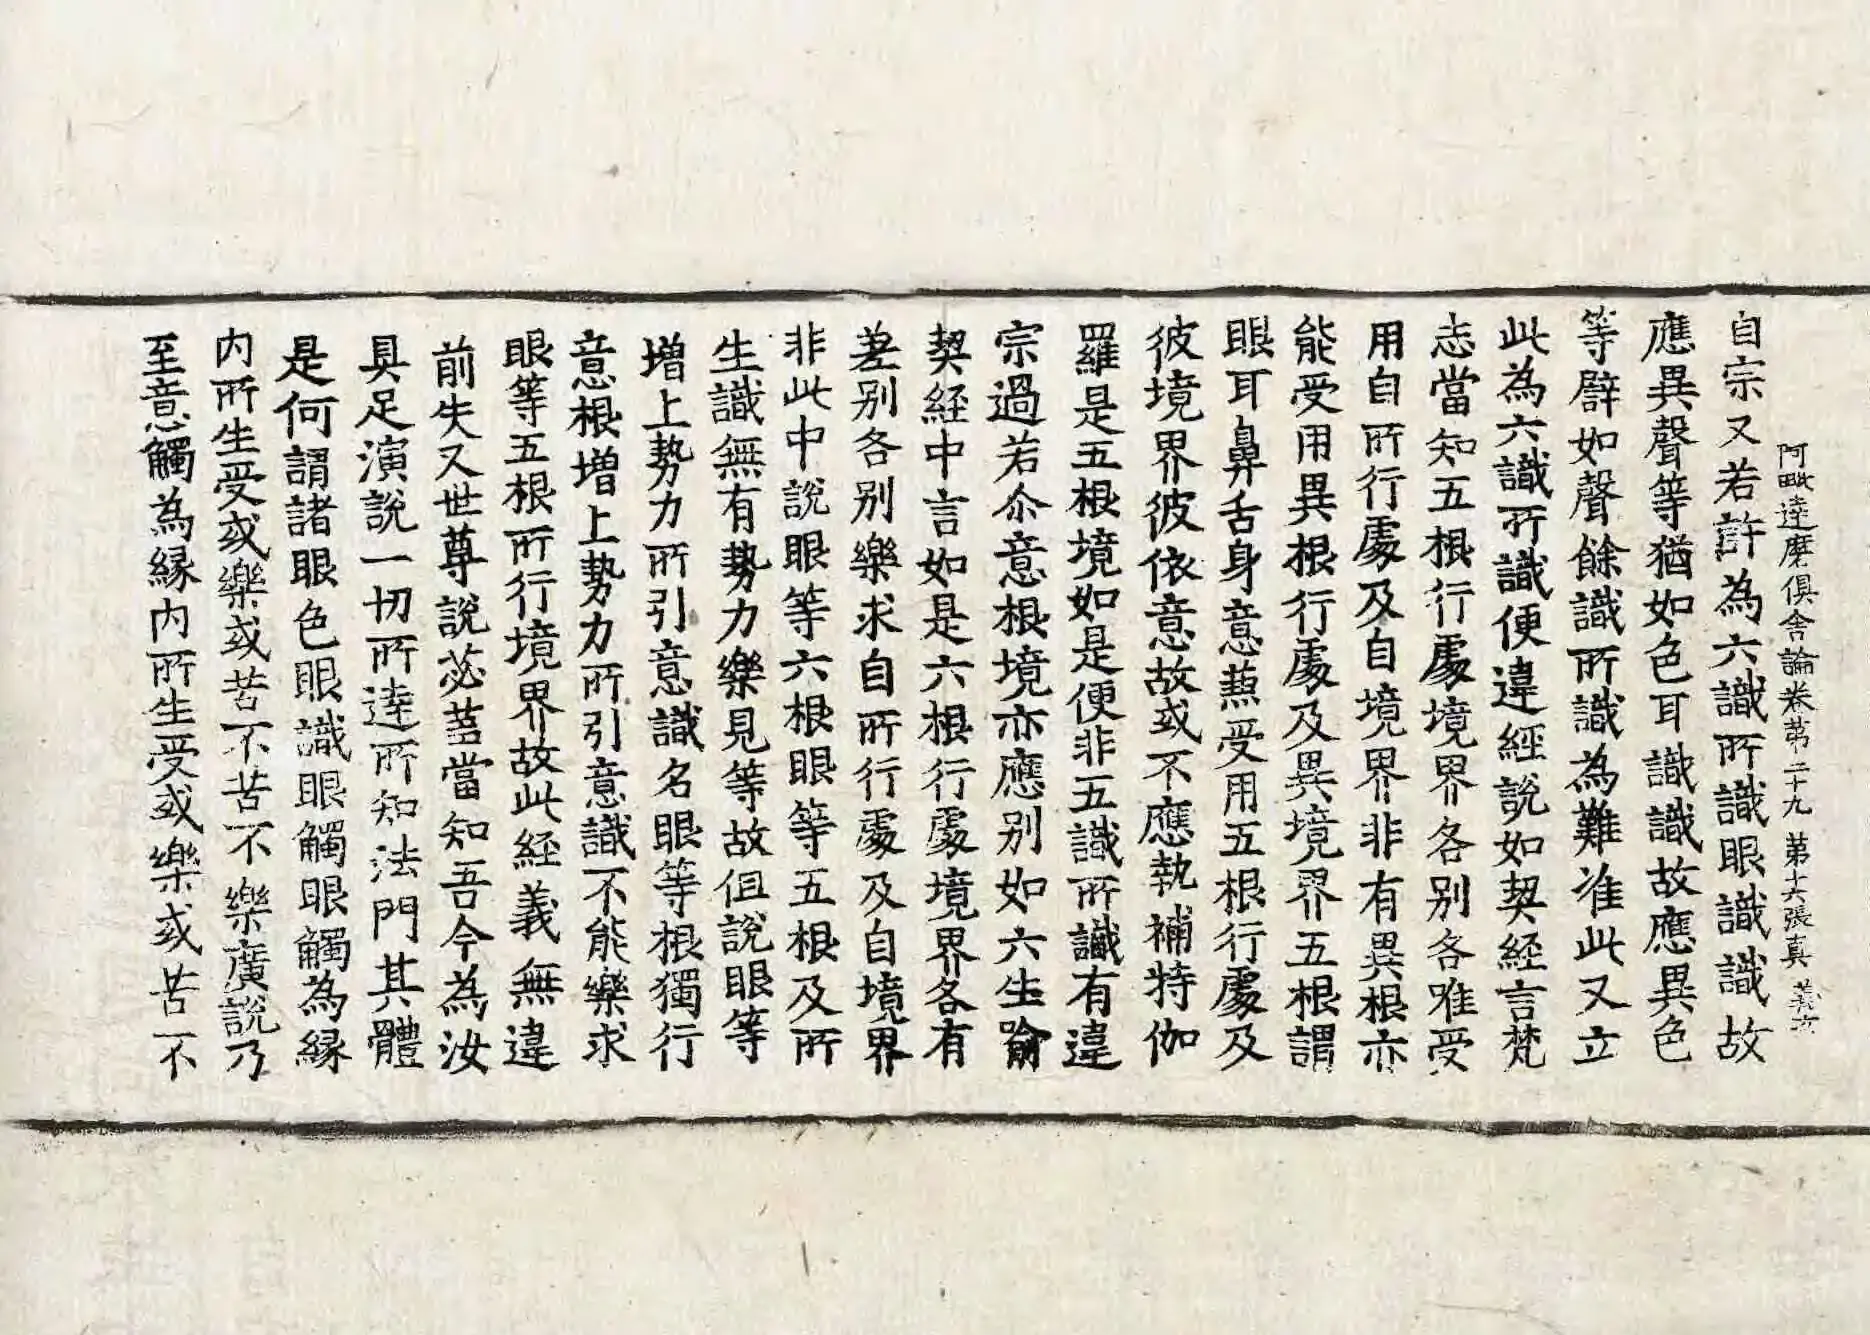 阿毗達磨俱舍論卷苐二十九 第十六張真 義
自宗又若許為六識所識眼識識故
應異聲等猶如色耳識識故應異色
等譬如聲餘識所識為難准此又立
此為六識所識便違經說如契經言梵
志當知五根行處境界各別各唯受
用自所行處及自境界非有異根亦
能受用異根行處及異境界五根謂
眼耳鼻舌身意兼受用五根行處及
彼境界彼依意故或不應執補特伽
羅是五根境如是便非五識所識有違
宗過若尒意根境亦應別如六生喻
契經中言如是六根行處境界各有
差別各別樂求自所行處及自境界
非此中說眼等六根眼等五根及所
生識無有勢力樂見等故但說眼等
增上勢力所引意識名眼等根獨行
意根增上勢力所引意識不能樂求
眼等五根所行境界故此經義無違
前失又世尊說苾蒭當知吾今為汝
具足演說一切所達所知法門其體
是何謂諸眼色眼識眼觸眼觸為緣
內所生受或樂或苦不苦不樂廣說乃
至意觸為緣內所生受或樂或苦不